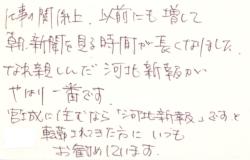 仕事の関係上、以前にも増して
朝、新聞を見る時間が長くなりました。
なれ親しんだ河北新報が
やはり一番です。
宮城に住むなら「河北新報」ですと
転勤されてきた方にいつも
お勧めしています。